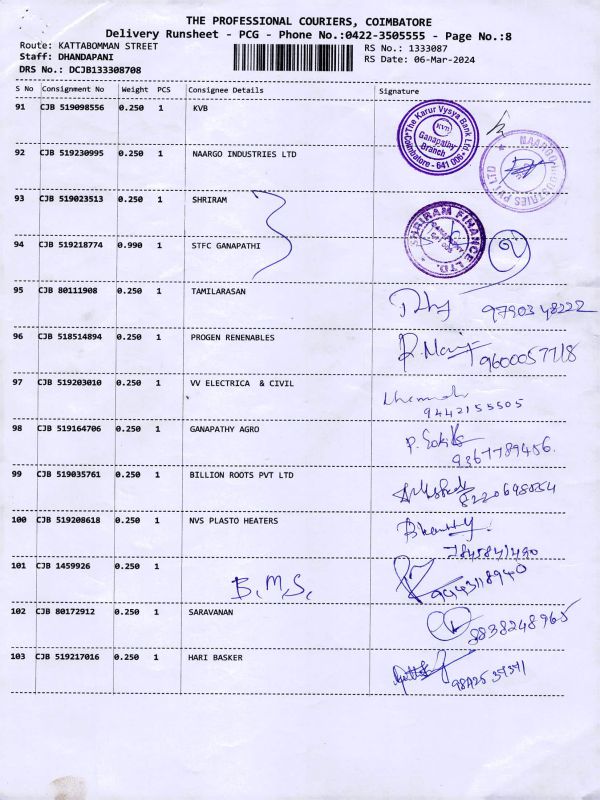 THE PROFESSIONAL COURIERS, COIMBATORE
Delivery Runsheet - PCG - Phone No.:0422-3505555 - Page No.:8
Route: KATTABOMMAN STREET RS No.: 1333087
Staff: DHANDAPANI RS Date: 06-Mar-2024
DRS No.: DCJB133308708
S No Consignment No Weight PCS Consignee Details Signature
91 CJB 519098556 0.250 1 KVB
The Karur Vysya Bank Ltd.
KVB
Ganapathy
Branch
Coimbatore - 641 006
92 CJB 519230995 0.250 1 NAARGO INDUSTRIES LTD
NAARGO INDUSTRIES PVT LTD
93 CJB 519023513 0.250 1 SHRIRAM
SHRIRAM FINANCE LTD.
94 CJB 519218774 0.990 1 STFC GANAPATHI
95 CJB 80111908 0.250 1 TAMILARASAN
9790348222
96 CJB 518514894 0.250 1 PROGEN RENENABLES
9600057718
97 CJB 519203010 0.250 1 VV ELECTRICA & CIVIL
9442155505
98 CJB 519164706 0.250 1 GANAPATHY AGRO
9367789456.
99 CJB 519035761 0.250 1 BILLION ROOTS PVT LTD
100 CJB 519208618 0.250 1 NVS PLASTO HEATERS
7845841490
101 CJB 1459926 0.250 1 B.M.S.
102 CJB 80172912 0.250 1 SARAVANAN
8838248965
103 CJB 519217016 0.250 1 HARI BASKER